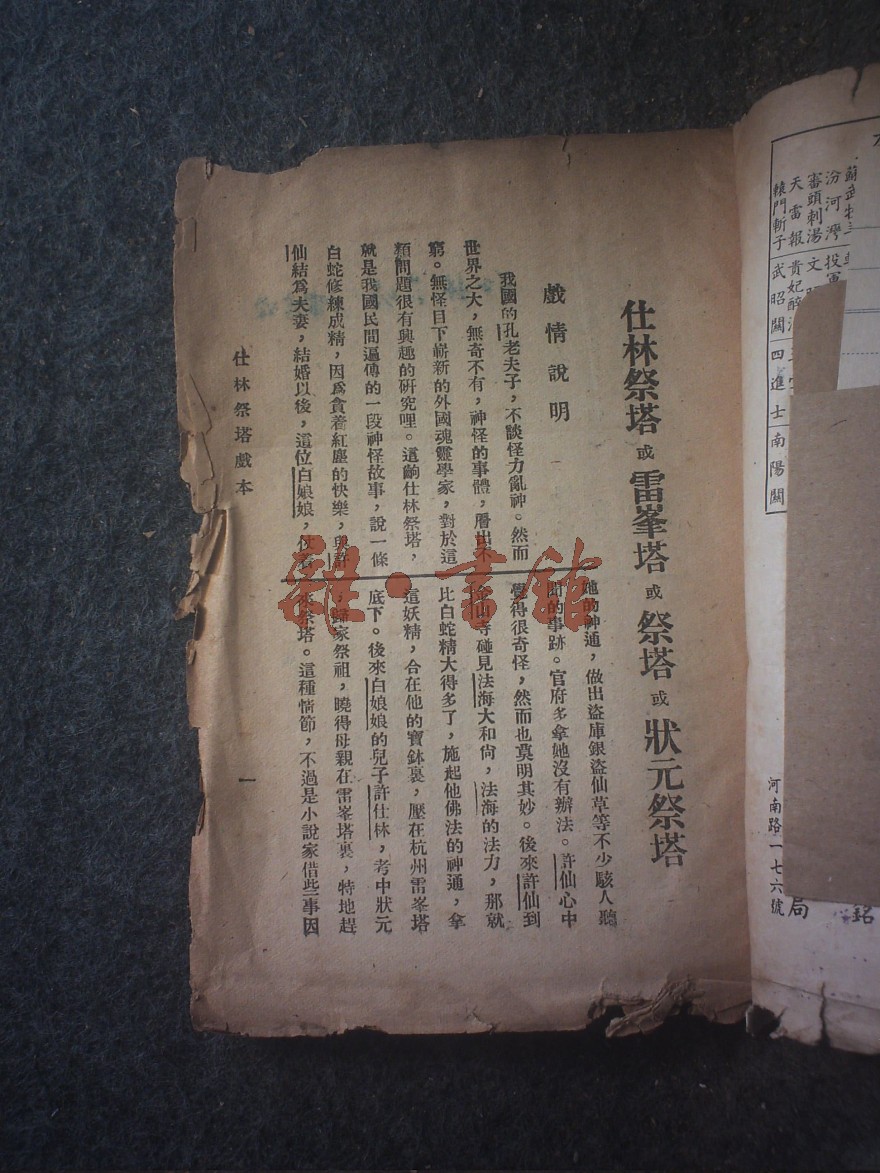 汾河灣 投軍
審頭刺湯 文
天雷報 貴妃醉
轅門斬子 武昭關 四進士 南陽關
河南路一七六號
銘
局
仕林祭塔 或 雷峯塔 或 祭塔 或 狀元祭塔
戲情說明
我國的孔老夫子，不談怪力亂神。然而
世界之大，無奇不有，神怪的事體，層出不
窮。無怪目下嶄新的外國魂靈學家，對於這
類問題很有興趣的研究哩。這齣仕林祭塔，
就是我國民間遍傳的一段神怪故事，說一條
白蛇修練成精，因爲貪着紅塵的快樂，與許
仙結爲夫妻，結婚以後，這位白娘娘，仗着
她的神通，做出盜庫銀盜仙草等不少駭人聽
聞的事跡。官府多拿她沒有辦法。許仙心中
覺得很奇怪，然而也莫明其妙。後來許仙到
仙寺碰見法海大和尙，法海的法力，那就
比白蛇精大得多了，施起他佛法的神通，拿
這妖精，合在他的寶鉢裏，壓在杭州雷峯塔
底下。後來白娘娘的兒子許仕林，考中狀元
，歸家祭祖，曉得母親在雷峯塔裏，特地趕
來祭塔。這種情節，不過是小說家借些事因
仕林祭塔戲本
一
雜·書館